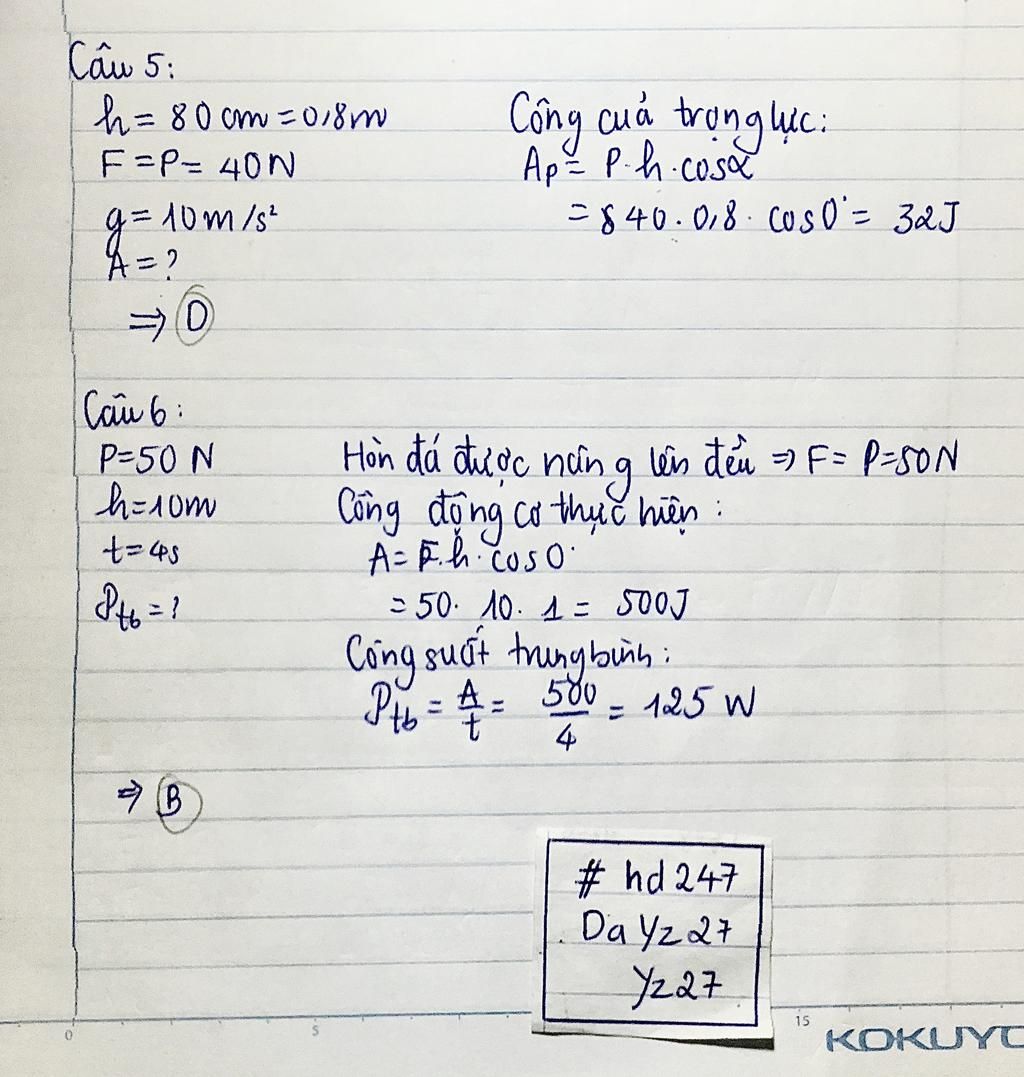 Câu 5:
h = 80 cm = 0,8m
F = P = 40N
g = 10m/s²
A = ?
⇒ D
Công cuả trọng lực:
Ap = P.h.cosα
= 840.0,8.cos0° = 32J
Câu 6:
P=50 N
h=10m
t=4s
𝒫tb = ?
Hòn đá được nâng lên đều ⇒ F = P=50N
Công động cơ thực hiện:
A = F.h.cos0°
= 50. 10. 1 = 500J
Công suất trung bình:
𝒫tb = A/t = 500/4 = 125 W
⇒ B
# hd247
Da Yz27
Yz27
0 5 15
KOKUYO